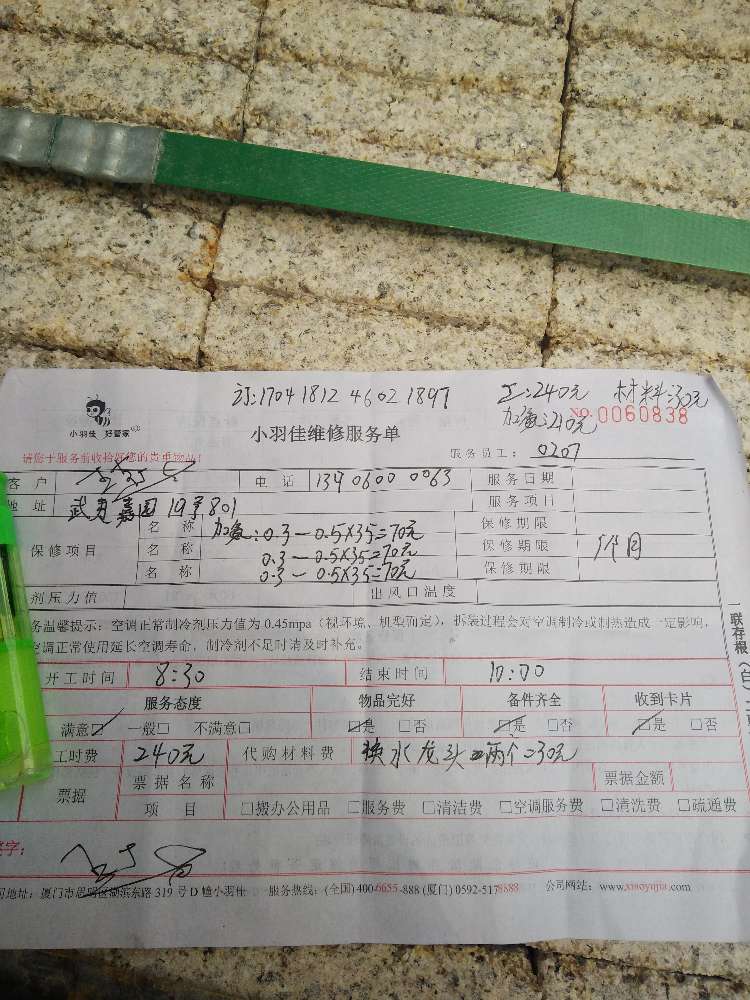 订:1704 1812 4602 1897
工:240元 材料:30元
加氟:210元
NO:0060838
小羽佳 好管家
小羽佳维修服务单
请您于服务前收检好您的贵重物品!
服务员工: 0207
客户 电话 139 0600 0063 服务日期
地址 19号801 服务项目
保修项目
名称 加氟:0.3-0.5X35=70元 保修期限
名称 0.3-0.5X35=70元 保修期限 1个月
名称 0.3-0.5X35=70元 保修期限
剂压力值 出风口温度
务温馨提示:空调正常制冷剂压力值为 0.45mpa(视环境、机型而定),拆装过程会对空调制冷或制热造成一定影响,
空调正常使用延长空调寿命,制冷剂不足时请及时补充。
开工时间 8:30 结束时间
服务态度 物品完好 备件齐全 收到卡片
满意☑ 一般□ 不满意□ ☑是 □否 ☑是 □否 ☑是 □否
工时费 240元 代购材料费 换水龙头两个=30元
票据 票据名称 票据金额
项目 □搬办公用品 □服务费 □清洁费 □空调服务费 □清洗费 □疏通费
签字:
司地址:厦门市思明区湖滨东路 319 号 D 幢小羽佳 服务热线:(全国)400-6655-888 (厦门)0592-5178888 公司网站:www.xiaoyujia.com
联存根